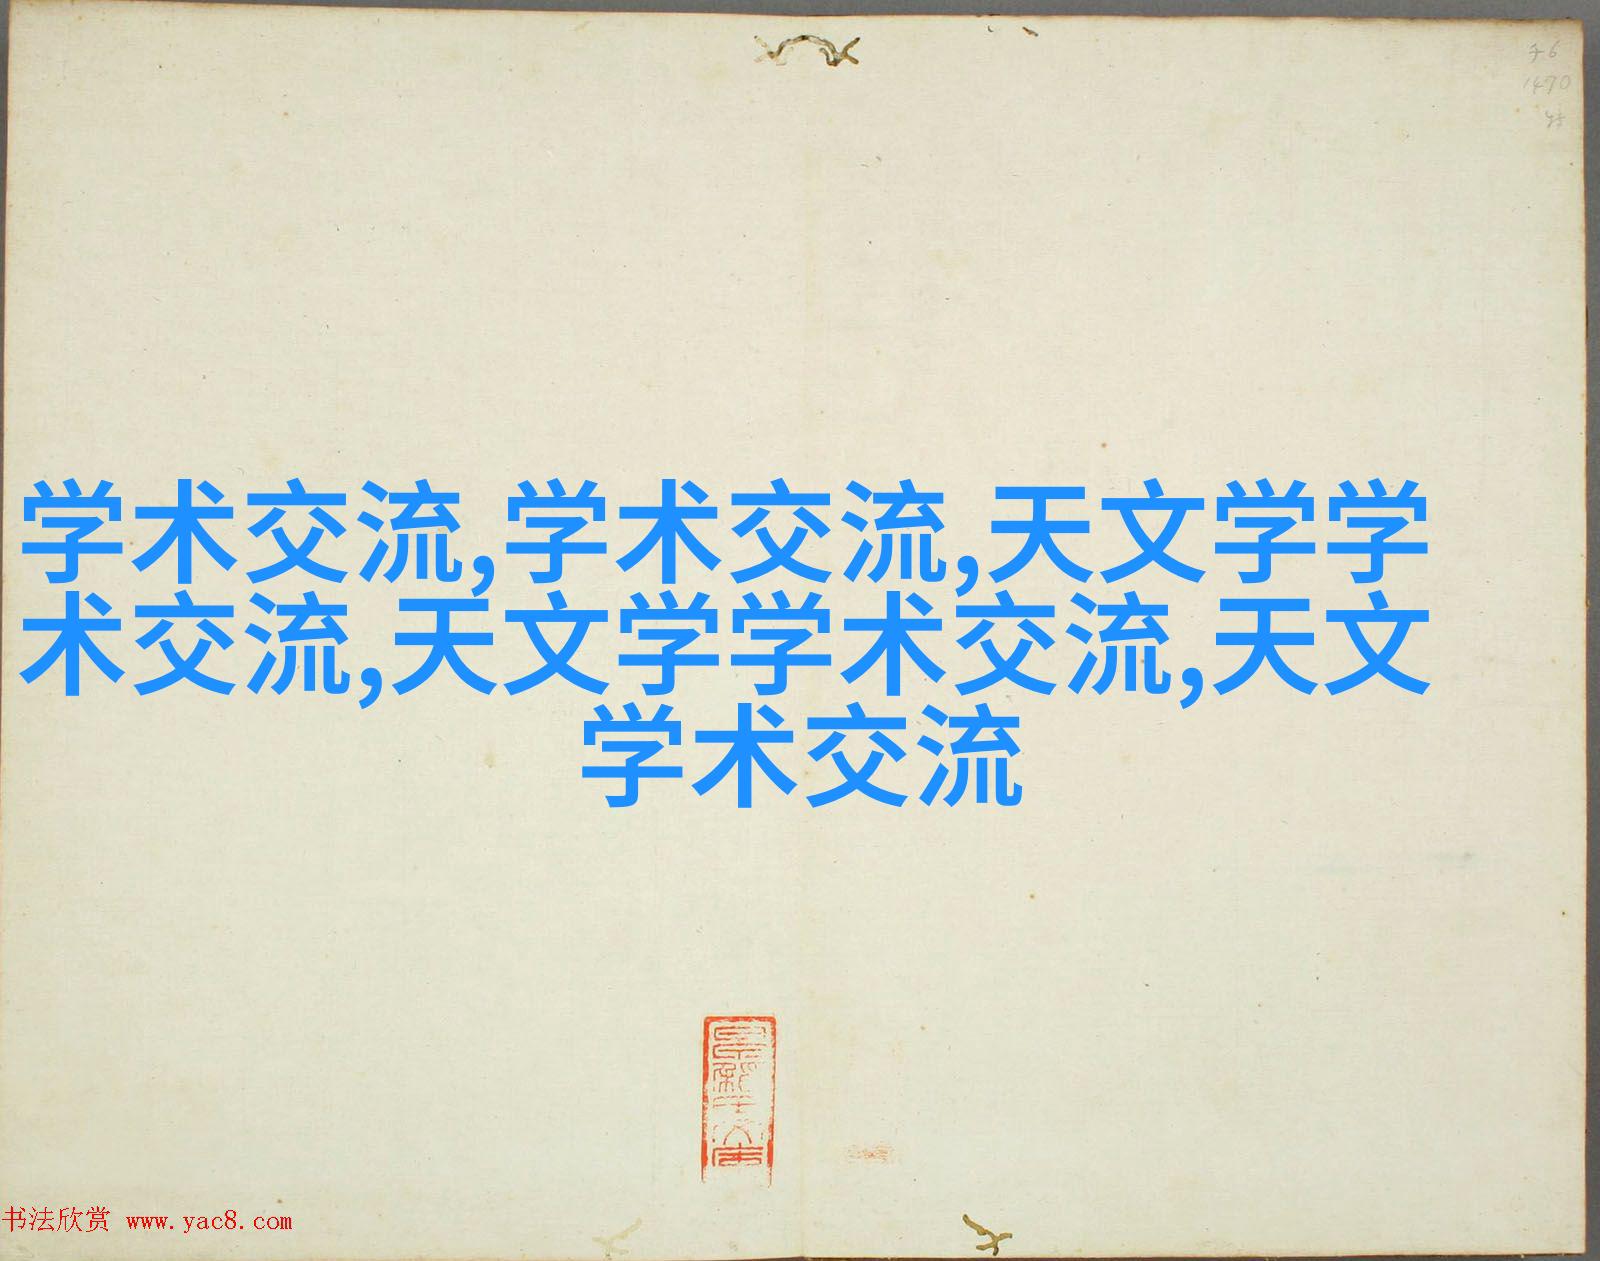 学术交流,学术交流,天文学学
术交流,天文学学术交流,天文
学术交流
书法欣赏 www.yac8.com